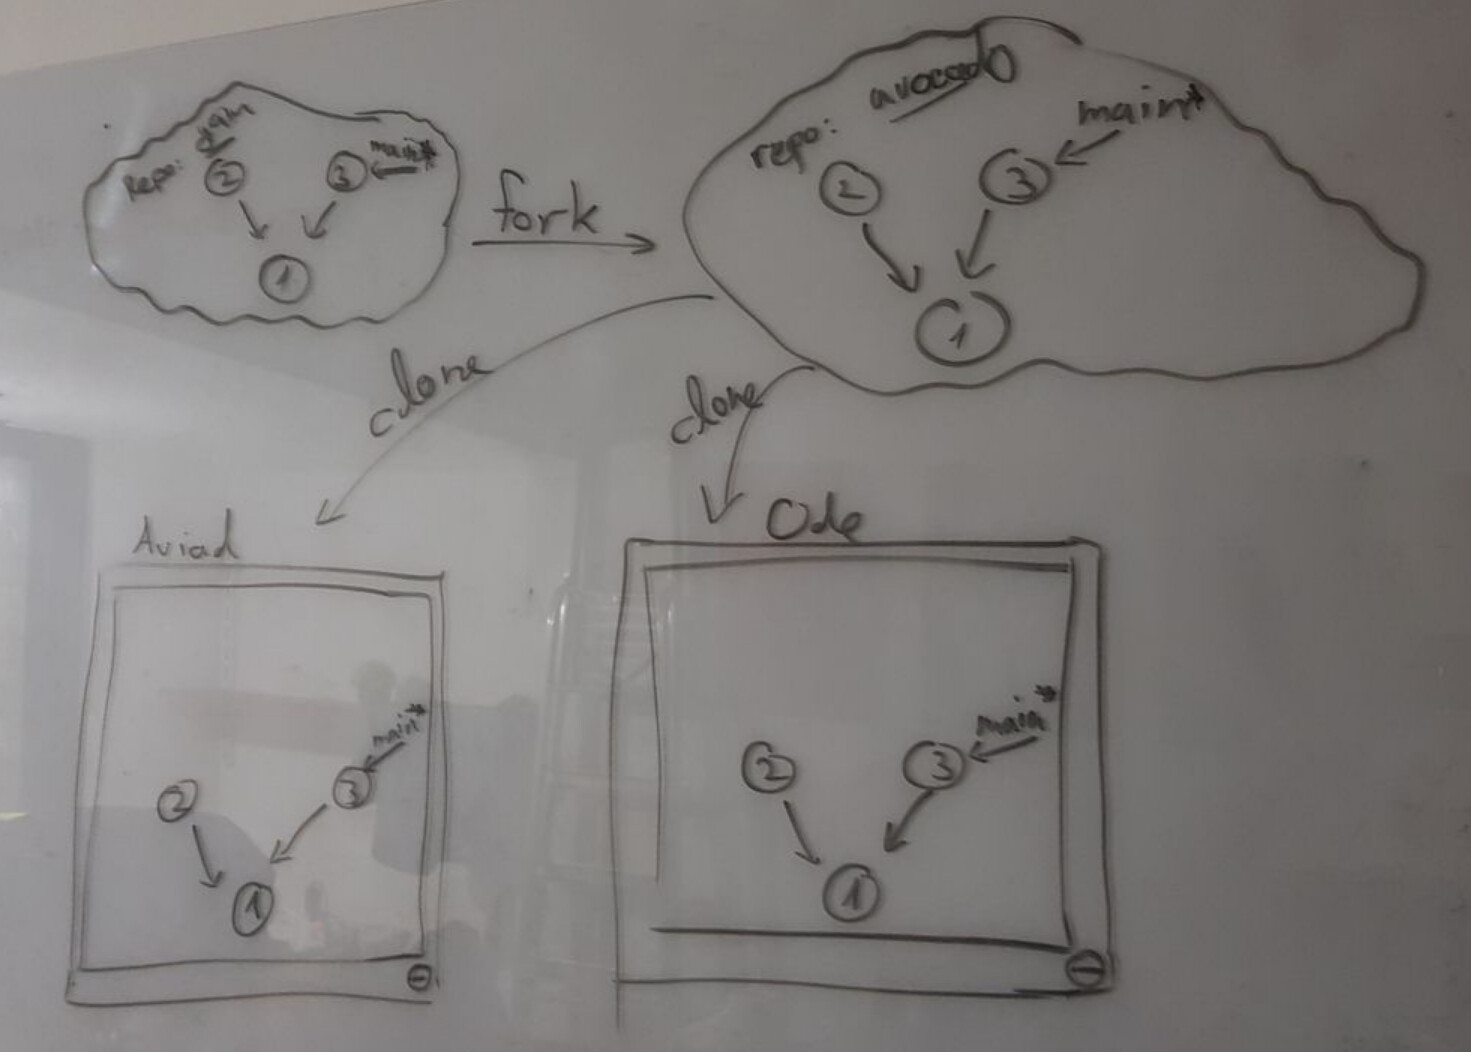 repo:
2
3
main*
1
fork
repo: avocado
2
3
main*
1
clone
clone
Aviad
2
3
main*
1
Ode
2
3
main*
1